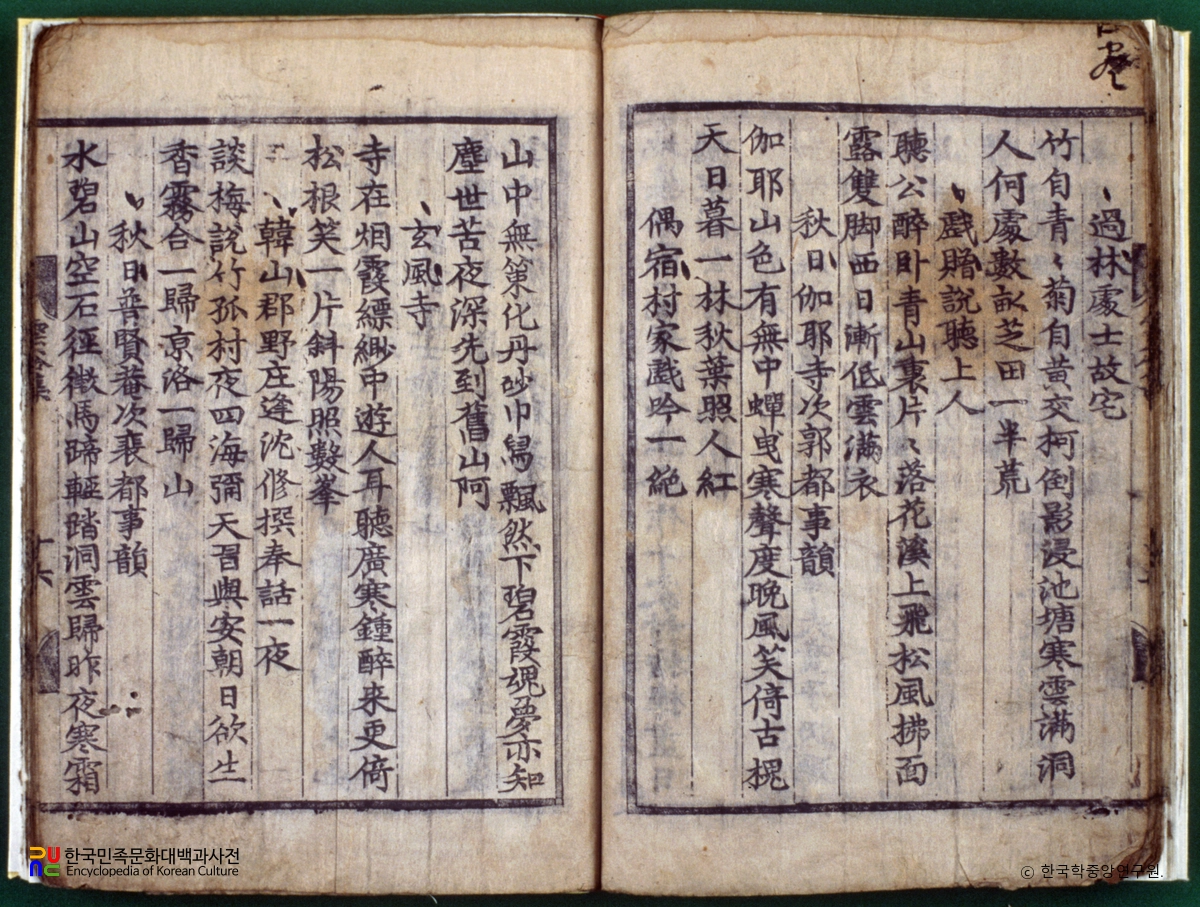 過林處士故宅
竹自青〻菊自黄交柯倒影浸池塘寒雲滿洞
人何處數畝芝田一半荒
戱贈說聽上人
聽公醉卧青山裏片〻落花溪上飛松風拂面
露雙脚西日漸低雲滿衣
秋日伽耶寺次郭都事韻
伽耶山色有無中蟬曳寒聲度晩風笑倚古槐
天日暮一林秋葉照人紅
偶宿村家戱吟一絶
山中無策化丹砂巾舄飄然下碧霞魂夢亦知
塵世苦夜深先到舊山阿
玄風寺
寺在烟霞縹緲中遊人耳聽廣寒鍾醉來更倚
松根笑一片斜陽照數峯
韓山郡野庄逢沈修撰奉話一夜
談梅說竹孤村夜四海彌天習與安朝日欲生
香霧合一歸京洛一歸山
秋日普賢菴次裵都事韻
水碧山空石徑微馬蹄輕踏洞雲歸昨夜寒霜
十六
한국민족문화대백과사전
Encyclopedia of Korean Culture
© 한국학중앙연구원.